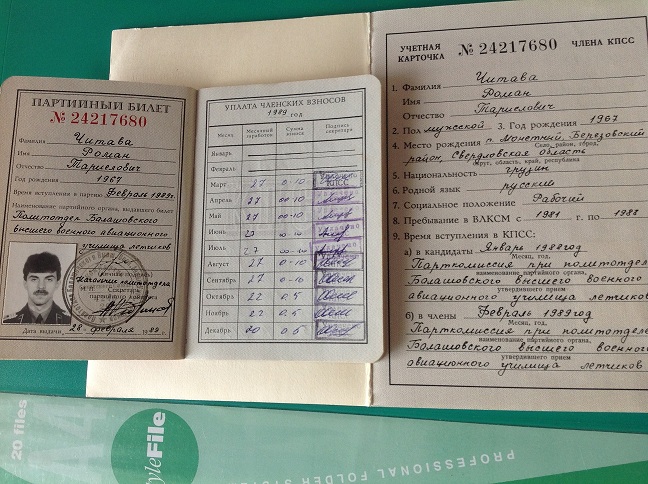 ПАРТИЙНЫЙ БИЛЕТ
№ 24217680
Фамилия Читава
Имя Роман
Отчество Тариелович
Год рождения 1967
Время вступления в партию Февраль 1989г.
Наименование партийного органа, выдавшего билет
Политотдел Балашовского
высшего военного авиационного
училища летчиков
(личная подпись)
Начальник политотдела
М.П. Секретарь
партийного комитета
Дата выдачи 28 февраля 1989 г.
УПЛАТА ЧЛЕНСКИХ ВЗНОСОВ
1989 год
Месяц Месячный заработок Сумма взноса Подпись секретаря
Январь
Февраль
Март 27 0-10 КПСС
Апрель 27 00-10
Май 27 00-10
Июнь 27
Июль 27
Август 27 0-10
Сентябрь 27 0-10
Октябрь 22 0,5
Ноябрь 22 0,5
Декабрь 20 0,5
УЧЕТНАЯ КАРТОЧКА № 24217680 ЧЛЕНА КПСС
1. Фамилия Читава
Имя Роман
Отчество Тариелович
2. Пол мужской 3. Год рождения 1967
4. Место рождения п. Монетный, Березовский
Село, район, город,
район, Свердловская область
округ, область, край, республика
5. Национальность грузин
6. Родной язык русский
7. Социальное положение Рабочий
8. Пребывание в ВЛКСМ с 1981 г. по 1988
9. Время вступления в КПСС:
а) в кандидаты Январь 1988год
Месяц, год,
Парткомиссия при политотделе
наименование партийного органа,
Балашовского высшего военного
утвердившего прием
авиационного училища летчиков
б) в члены Февраль 1989год
Месяц, год,
Парткомиссия при политотделе
наименование партийного органа,
Балашовского высшего военного
утвердившего прием
авиационного училища летчиков
20 files
yleFile
PROFESSIONAL FOLDER SYST